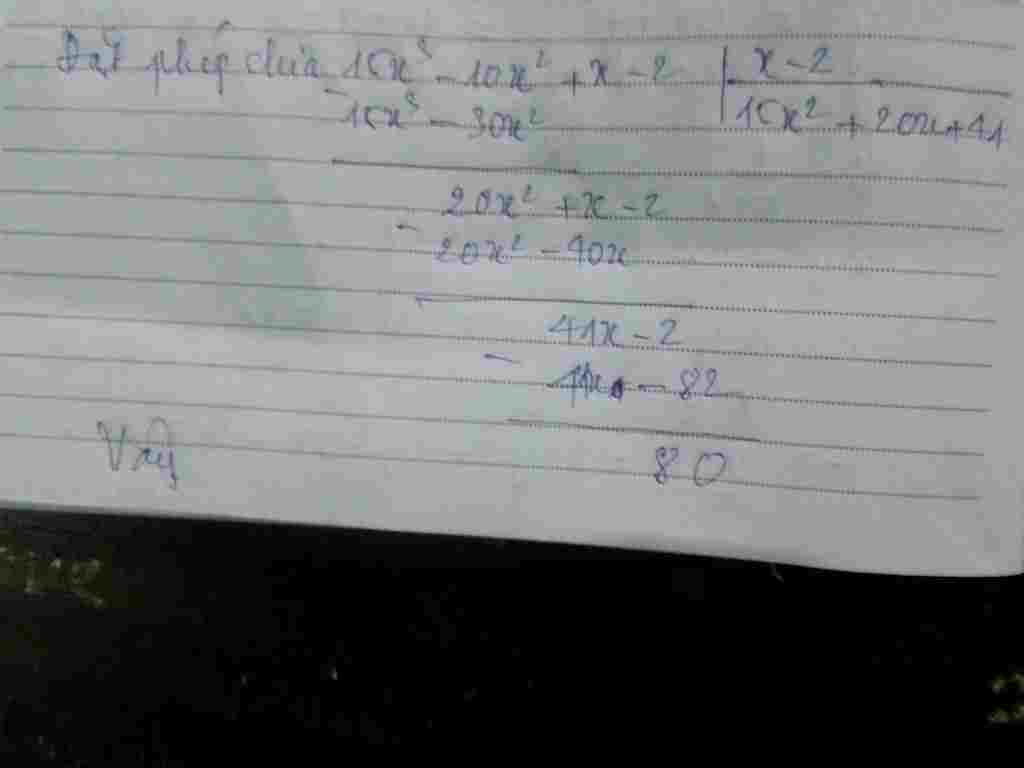 Đặt phép chia 15x³ - 10x² + x - 2 | x - 2
- 15x³ - 30x² | 15x² + 20x + 41
20x² + x - 2
- 20x² - 40x
41x - 2
- 41x - 82
80
Vậy